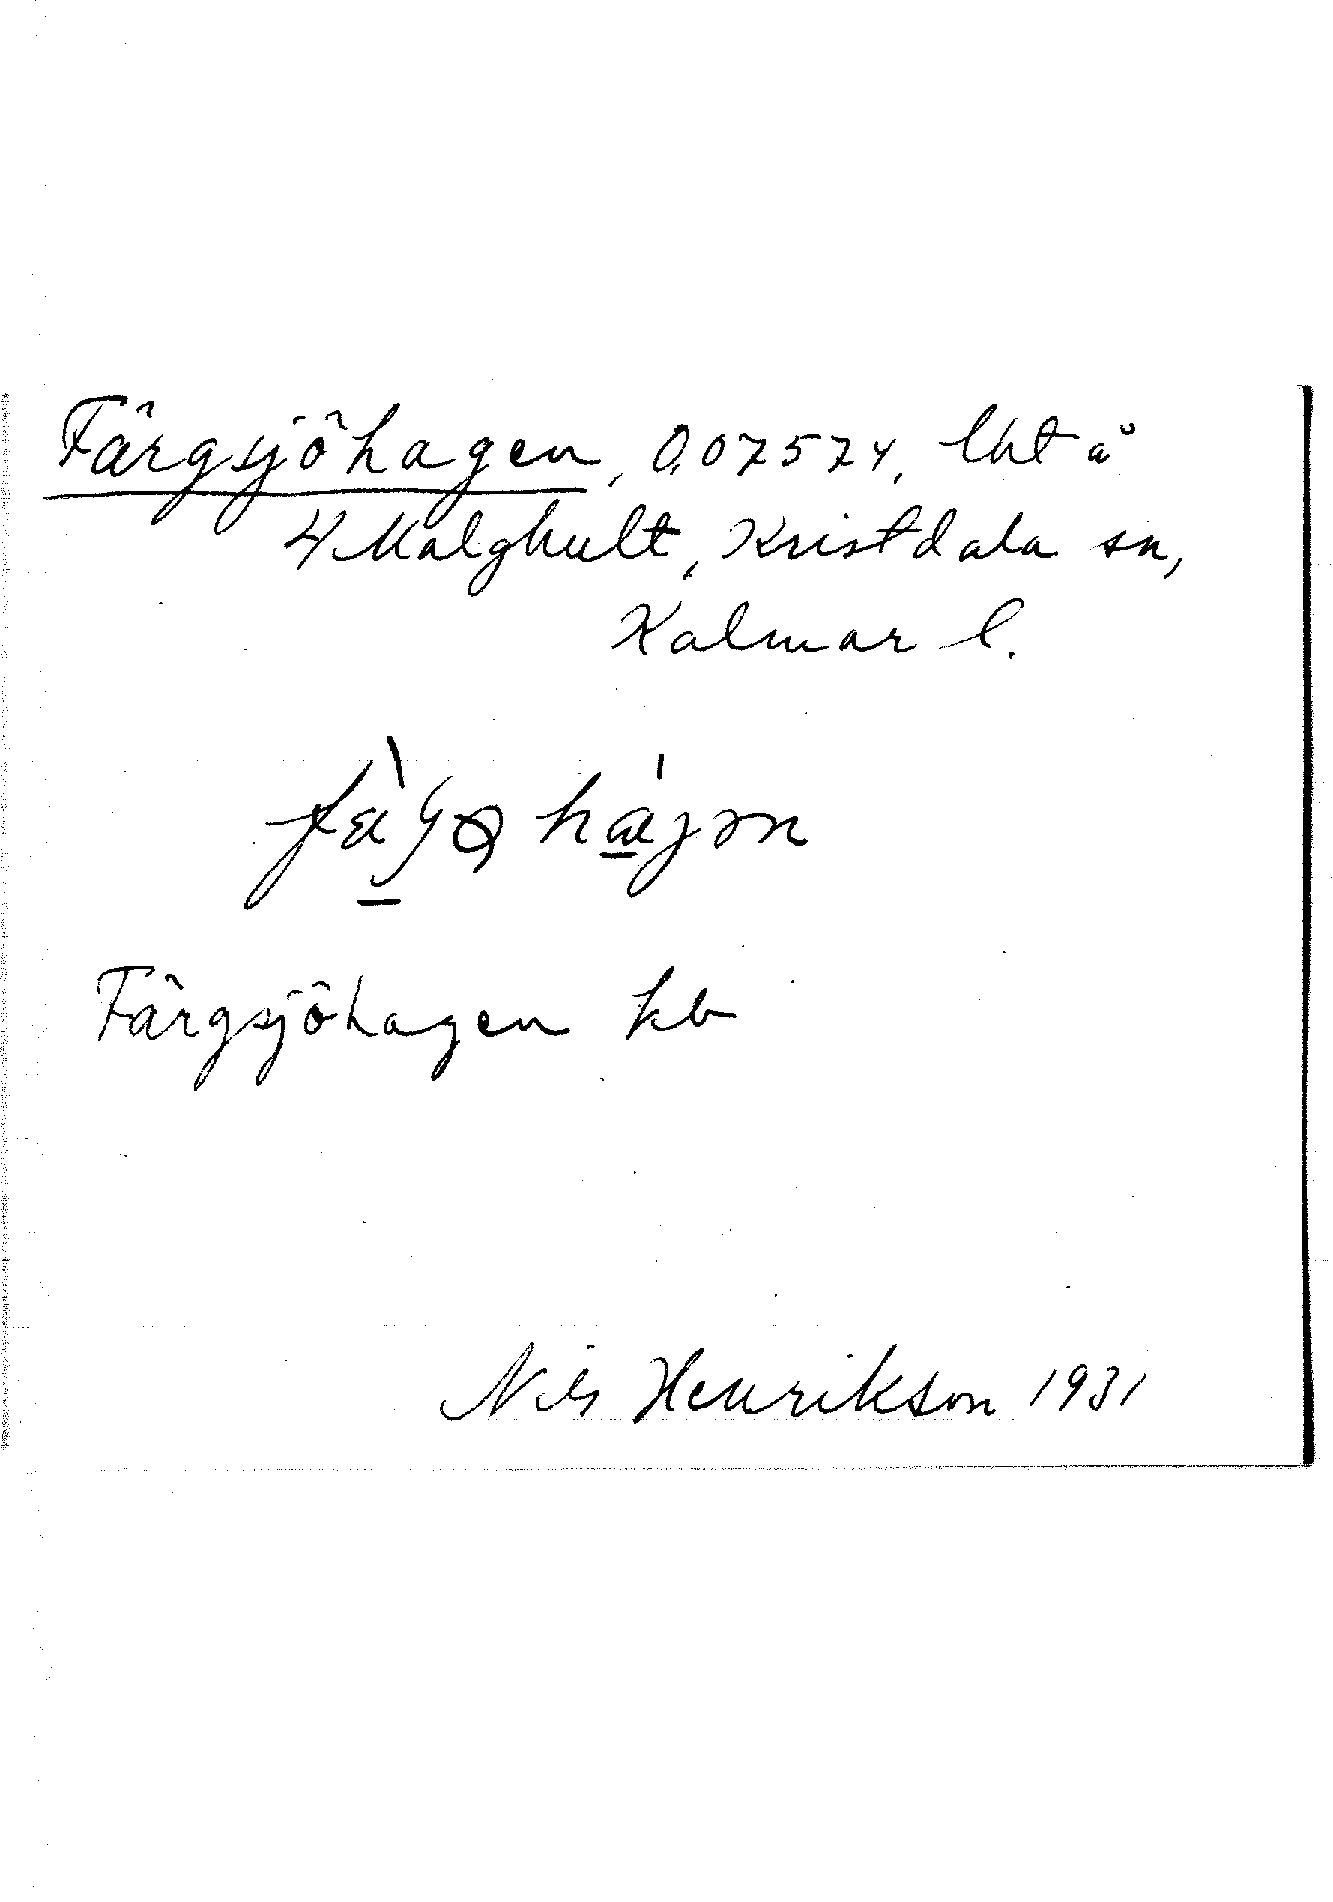 Färgsjöhagen, 0,07574, lht å
4 Malghult, Kristdala sn,
Kalmar l.
Färgsjöhagen kb
Nils Henrikson 1931